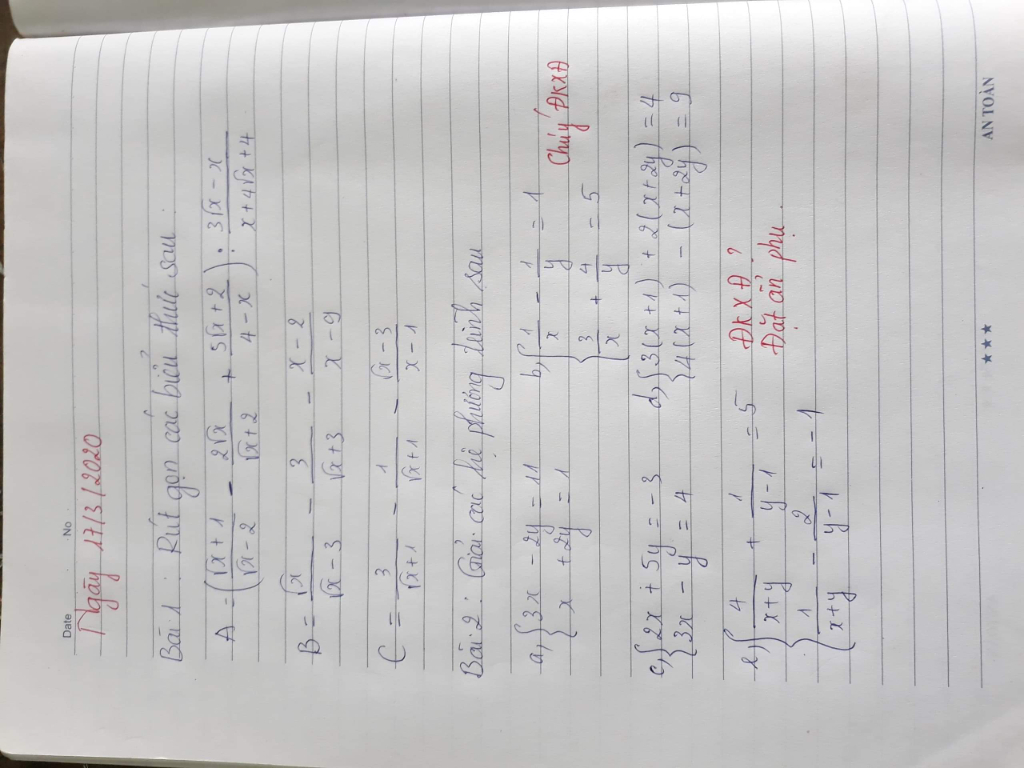 Date No
Ngày 17/3/2020
Bài 1 : Rút gọn các biểu thức sau.
A = ( (√x + 1)/(√x - 2) - 2√x/(√x + 2) + (5√x + 2)/(4 - x) ) : (3√x - x)/(x + 4√x + 4)
B = √x/(√x - 3) - 3/(√x + 3) - (x - 2)/(x - 9)
C = 3/(√x + 1) - 1/(√x + 1) - (√x - 3)/(x - 1)
Bài 2 : Giải các hệ phương trình sau
a, { 3x - 2y = 11 b, { 1/x - 1/y = 1 Chú ý ĐKXĐ
{ x + 2y = 1 { 3/x + 4/y = 5
c, { 2x + 5y = -3 d, { 3(x + 1) + 2(x + 2y) = 4
{ 3x - y = 4 { 4(x + 1) - (x + 2y) = 9
e, { 4/(x+y) + 1/(y-1) = 5 ĐKXĐ ?
{ 1/(x+y) - 2/(y-1) = -1 Đặt ẩn phụ.
★★★ AN TOÀN